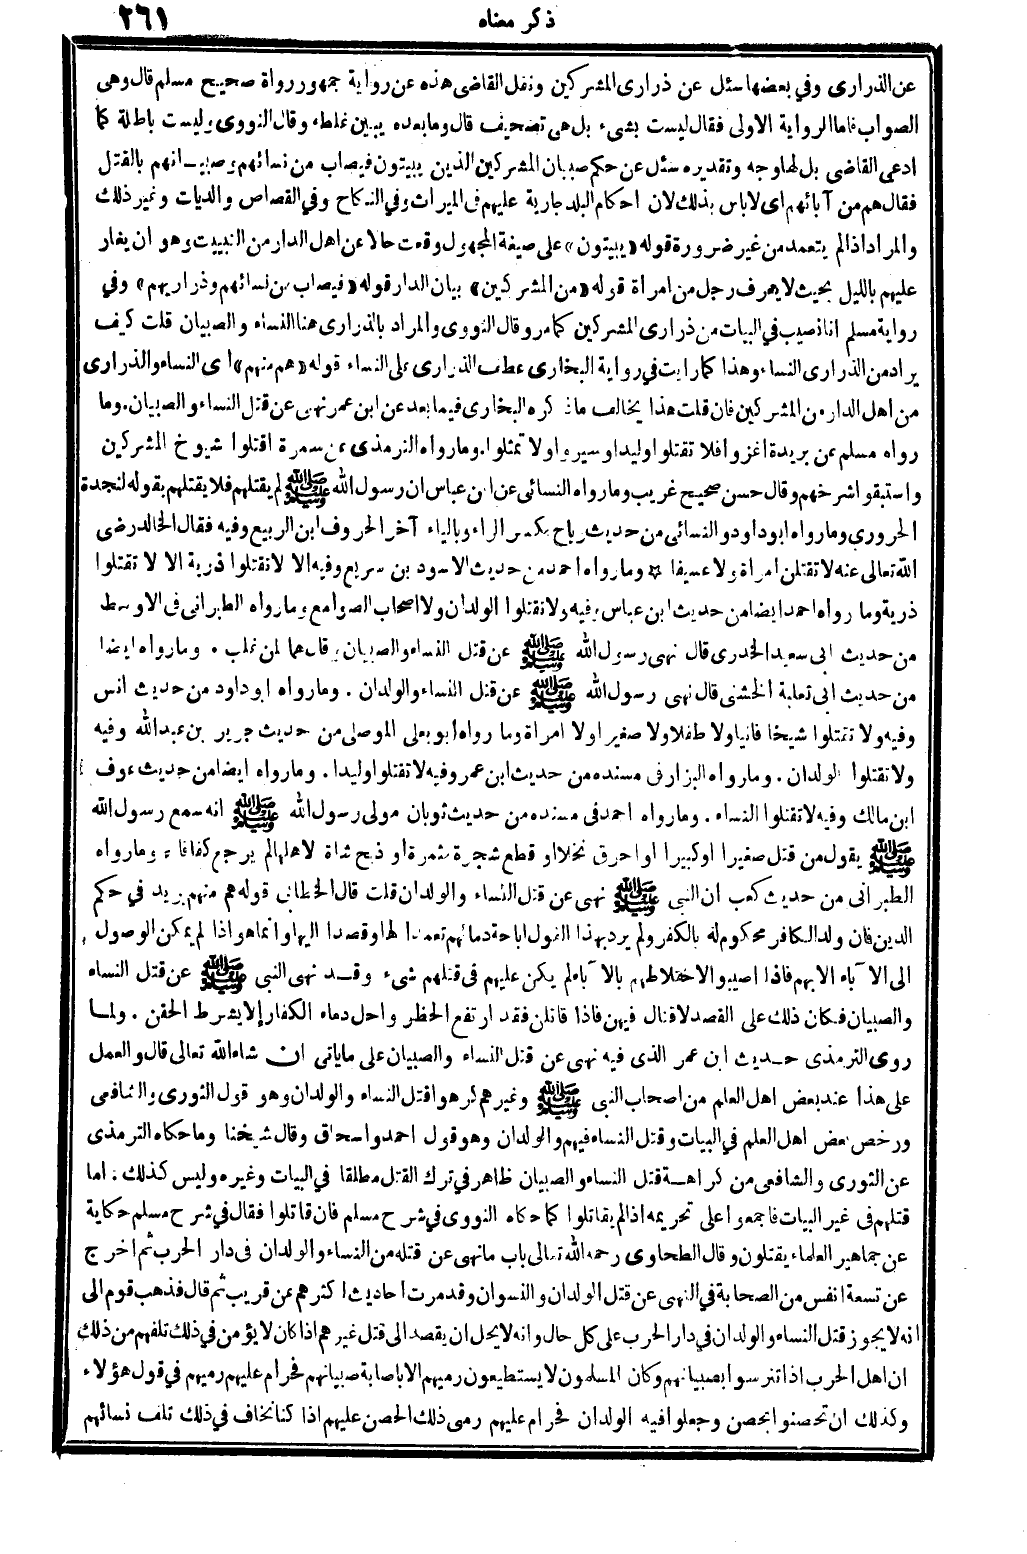 ذكر معناه ٢٦١
عن الذرارى وفي بعضها سئل عن ذرارى المشركين ونقل القاضى هذه عن رواية جمهور رواة صحيح مسلم قال وهى
الصواب فاما الرواية الاولى فقال ليست بشىء بل هى تصحيف قال وما بعده يبين غلطه وقال النووى وليست باطلة كما
ادعى القاضى بل لها وجه وتقديره سئل عن حكم صبيان المشركين الذين يبيتون فيصاب من نسائهم وصبيانهم بالقتل
فقال هم من آبائهم اى لا باس بذلك لان احكام البلد جارية عليهم فى الميراث وفي النكاح وفي القصاص والديات وغير ذلك
والمراد اذا لم يتعمد من غير ضرورة قوله «يبيتون» على صيغة المجهول وقعت حالا عن اهل الدار من التبييت وهو ان يغار
عليهم بالليل بحيث لا يعرف رجل من امرأة قوله «من المشركين» بيان الدار قوله «فيصاب من نسائهم وذراريهم» وفي
رواية مسلم انا نصيب في البيات من ذرارى المشركين كما مر وقال النووى والمراد بالذرارى هنا النساء والصبيان قلت كيف
يراد من الذرارى النساء وهذا كما رايت في رواية البخارى عطف الذرارى على النساء قوله «هم منهم» أى النساء والذرارى
من اهل الدار من المشركين فان قلت هذا يخالف ما ذكره البخارى فيما بعد عن ابن عمر نهى عن قتل النساء والصبيان. وما
رواه مسلم عن بريدة اغزوا فلا تقتلوا وليدا وسيروا ولا تمثلوا. وما رواه الترمذى عن سمرة اقتلوا شيوخ المشركين
واستبقوا شرخهم وقال حسن صحيح غريب وما رواه النسائى عن ابن عباس ان رسول الله ﷺ لم يقتلهم فلا يقتلهم بقوله لنجدة
الحرورى وما رواه ابو داود والنسائى من حديث رباح بكسر الراء وبالياء آخر الحروف ابن الربيع وفيه فقال الخالد رضى
الله تعالى عنه لا تقتلن امرأة ولا عسيفا * وما رواه احمد من حديث الاسود بن سريع وفيه الا لا تقتلوا ذرية الا لا تقتلوا
ذرية وما رواه احمد ايضا من حديث ابن عباس وفيه ولا تقتلوا الولدان ولا اصحاب الصوامع وما رواه الطبرانى فى الاوسط
من حديث ابى سعيد الخدرى قال نهى رسول الله ﷺ عن قتل النساء والصبيان وقال هما لمن غلب . وما رواه ايضا
من حديث ابى ثعلبة الخشنى قال نهى رسول الله ﷺ عن قتل النساء والولدان . وما رواه ابو داود من حديث انس
وفيه ولا تقتلوا شيخا فانيا ولا طفلا ولا صغيرا ولا امرأة وما رواه أبو يعلى الموصلى من حديث جرير بن عبد الله وفيه
ولا تقتلوا الولدان . وما رواه البزار فى مسنده من حديث ابن عمر وفيه لا تقتلوا وليدا . وما رواه ايضا من حديث عوف
ابن مالك وفيه لا تقتلوا النساء . وما رواه احمد فى مسنده من حديث ثوبان مولى رسول الله ﷺ انه سمع رسول الله
ﷺ يقول من قتل صغيرا او كبيرا او احرق نخلا او قطع شجرة مثمرة او ذبح شاة لاهابها لم يرجع كفافا ء وما رواه
الطبرانى من حديث كعب ان النبى ﷺ نهى عن قتل النساء والولدان قلت قال الخطابى قوله هم منهم يريد في حكم
الدين فان ولد الكافر محكوم له بالكفر ولم يرد بهذا القول اباحة دمائهم تعمدا لها وقصدا اليها وانما هو اذا لم يمكن الوصول
الى الآباء الا بهم فاذا اصيبوا لاختلاطهم بالآباء لم يكن عليهم فى قتلهم شىء وقد نهى النبى ﷺ عن قتل النساء
والصبيان فكان ذلك على القصد لا قتال فيهن فاذا قاتلن فقد ارتفع الحظر واحل دماء الكفار إلا بشرط الحقن . ولما
روى الترمذى حديث ابن عمر الذى فيه نهى عن قتل النساء والصبيان على ما ياتى ان شاء الله تعالى قال والعمل
على هذا عند بعض اهل العلم من اصحاب النبى ﷺ وغيرهم كرهوا قتل النساء والولدان وهو قول الثورى والشافعى
ورخص بعض اهل العلم في البيات وقتل النساء فيهم والولدان وهو قول احمد واسحاق وقال شيخنا وما حكاه الترمذى
عن الثورى والشافعى من كراهة قتل النساء والصبيان ظاهر في ترك القتل مطلقا في البيات وغيره وليس كذلك : اما
قتلهم فى غير البيات فاجمعوا على تحريمه اذا لم يقاتلوا كما حكاه النووى في شرح مسلم فان قاتلوا فقال في شرح مسلم حكاية
عن جماهير العلماء يقتلون وقال الطحاوى رحمه الله تعالى باب ما نهى عن قتله من النساء والولدان فى دار الحرب ثم اخرج
عن تسعة انفس من الصحابة في النهى عن قتل الولدان والنسوان وقد مرت احاديث اكثرهم عن قريب ثم قال فذهب قوم الى
انه لا يجوز قتل النساء والولدان في دار الحرب على كل حال وانه لا يحل ان يقصد الى قتل غيرهم اذا كان لا يؤمن في ذلك تلفهم من ذلك
ان اهل الحرب اذا تترسوا بصبيانهم وكان المسلمون لا يستطيعون رميهم الا باصابة صبيانهم فحرام عليهم رميهم في قول هؤلاء
وكذلك ان تحصنوا بحصن وجعلوا فيه الولدان فحرام عليهم رمى ذلك الحصن عليهم اذا كنا نخاف في ذلك تلف نسائهم